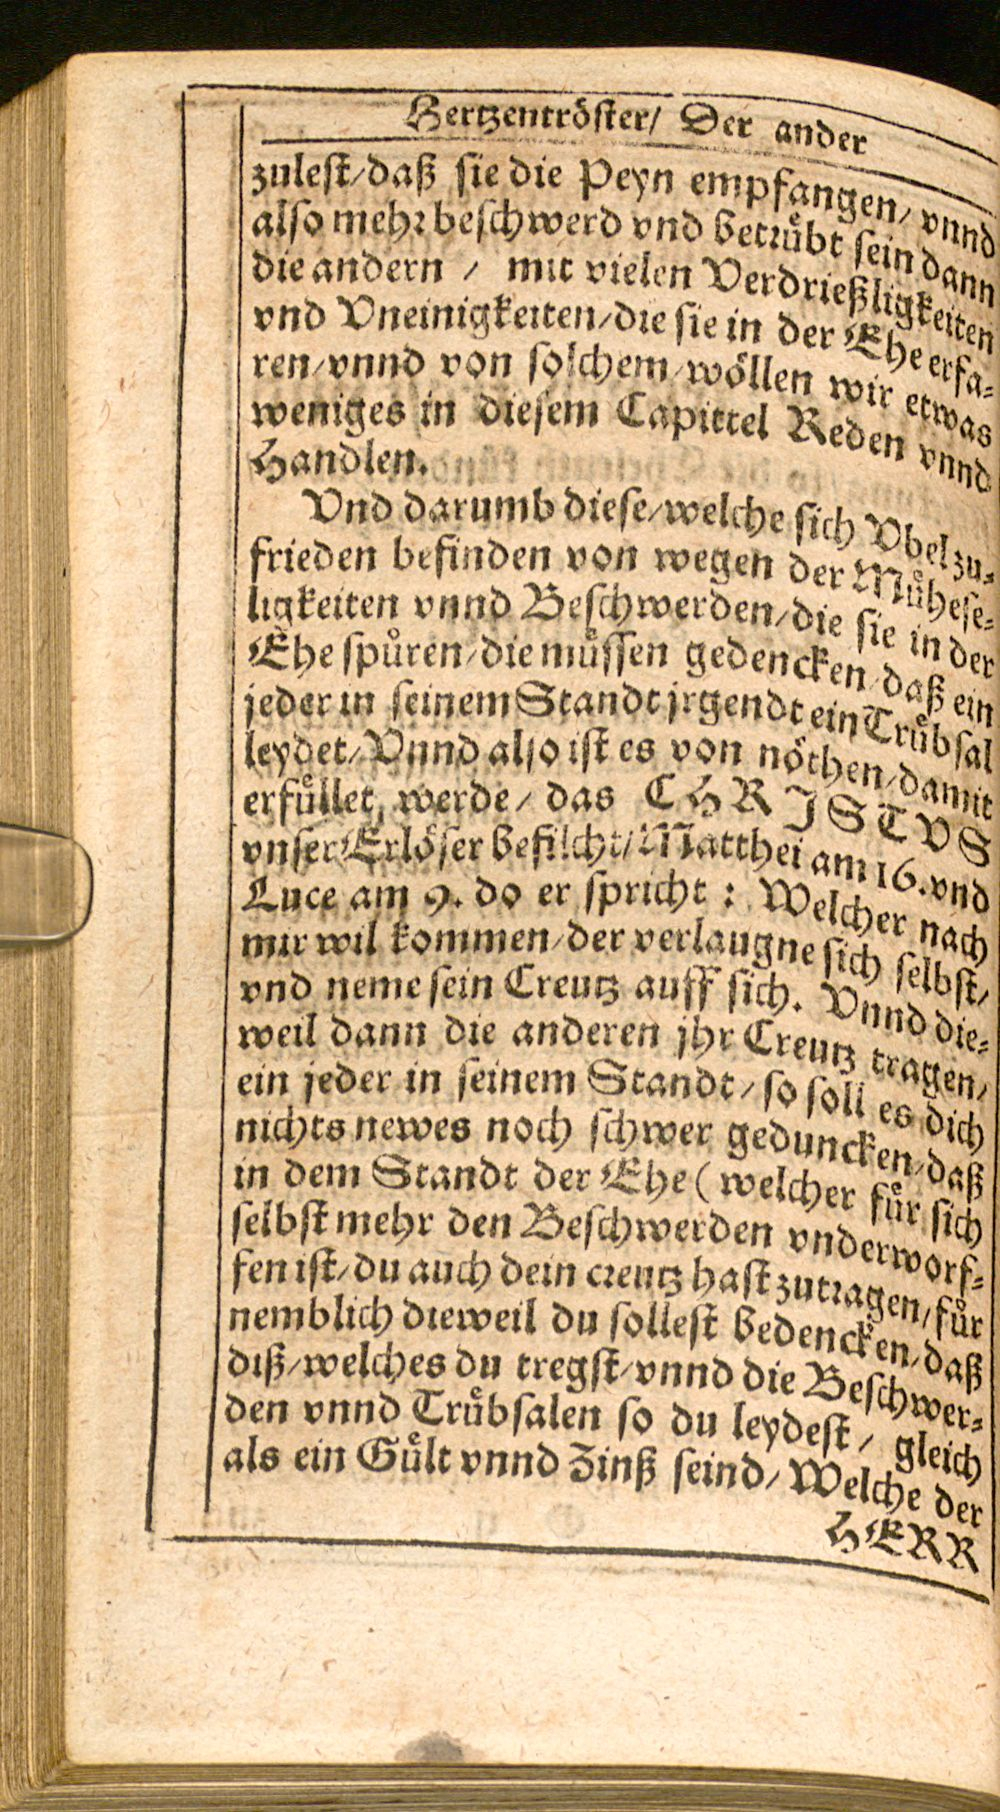 Hertzentröster/ Der ander
zulest/daß sie die Peyn empfangen/ vnnd
also mehr beschwerd vnd betruͤbt sein dann
die andern / mit vielen Verdrießligkeiten
vnd Vneinigkeiten/die sie in der Ehe erfa-
ren/vnnd von solchem/woͤllen wir etwas
weniges in diesem Capittel Reden vnnd
Handlen.
Vnd darumb diese/welche sich Vbel zu-
frieden befinden von wegen der Muͤhese-
ligkeiten vnnd Beschwerden/die sie in der
Ehe spuͤren/die muͤssen gedencken/daß ein
jeder in seinem Standt jrgendt ein Truͤbsal
leydet/Vnnd also ist es von noͤthen/damit
erfuͤllet, werde/ das CHRISTVS
vnser Erloͤser befilcht/Matthei am 16. vnd
Luce am 9. do er spricht: Welcher nach
mir wil kommen/der verlaugne sich selbst/
vnd neme sein Creutz auff sich. Vnnd die-
weil dann die anderen jhr Creutz tragen/
ein jeder in seinem Standt/so soll es dich
nichts newes noch schwer geduncken/daß
in dem Standt der Ehe (welcher fuͤr sich
selbst mehr den Beschwerden vnderworf-
fen ist/du auch dein creutz hast zutragen/fuͤr
nemblich dieweil du sollest bedencken/daß
diß/welches du tregst/vnnd die Beschwer-
den vnnd Truͤbsalen so du leydest/ gleich
als ein Guͤlt vnnd Zinß seind/Welche der
HERR